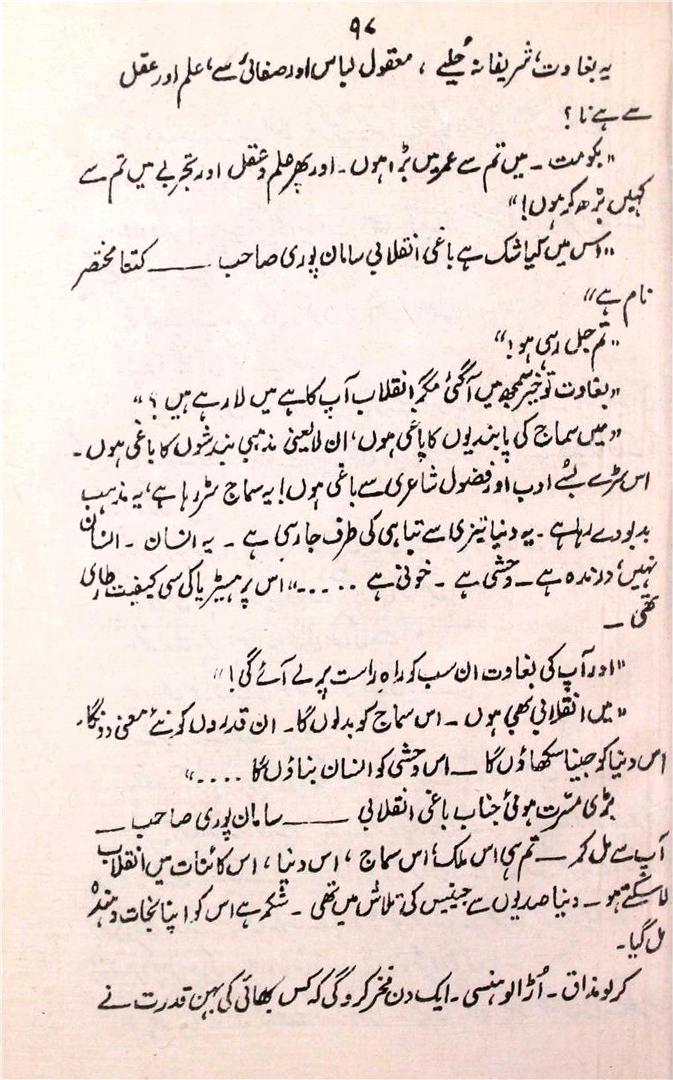 ۹۷
یہ بغاوت، شریفانہ حُلیے، معقول لباس اور صفائی سے، علم اور عقل
سے ہے نا؟
"بکو مت ۔ میں تم سے عمر میں بڑا ہوں ۔ اور پھر علم و عقل اور تجربے میں تم سے
کہیں بڑھ کر ہوں!"
"اس میں کیا شک ہے باغی انقلابی سامان پوری صاحب ـــــ کتنا مختصر
نام ہے"
"تم جل رہی ہو!"
"بغاوت تو خیر سمجھ میں آگئی مگر انقلاب آپ کاہے میں لا رہے ہیں؟"
"میں سماج کی پابندیوں کا باغی ہوں، ان لایعنی مذہبی بندشوں کا باغی ہوں ۔
اس سڑے بُسے ادب اور فضول شاعری سے باغی ہوں! یہ سماج سڑ رہا ہے، یہ مذہب
بدبو دے رہا ہے ۔ یہ دنیا تیزی سے تباہی کی طرف جا رہی ہے ۔ یہ انسان ۔ انسان
نہیں، درندہ ہے ــ وحشی ہے ۔ خونی ہے ....." اس پر ہسٹریا کی سی کیفیت طاری
تھی ــ
"اور آپ کی بغاوت ان سب کو راہِ راست پر لے آئے گی!"
"میں انقلابی بھی ہوں ۔ اس سماج کو بدلوں گا ۔ ان قدروں کو نئے معنی دونگا ۔
اس دنیا کو جینا سکھاؤں گا ــ اس وحشی کو انسان بناؤں گا ...."
بڑی مسّرت ہوئی جناب باغی انقلابی ـــــ سامان پوری صاحب ــ
آپ سے مل کر ــ تم ہی اس ملک، اس سماج، اس دنیا، اس کائنات میں انقلاب
لا سکتے ہو ۔ دنیا صدیوں سے جینیس کی تلاش میں تھی ۔ شکر ہے اس کو اپنا نجات دہندہ
مل گیا ۔
کر لو مذاق ۔ اُڑا لو ہنسی ۔ ایک دن فخر کرو گی کہ کس بھائی کی بہن قدرت نے